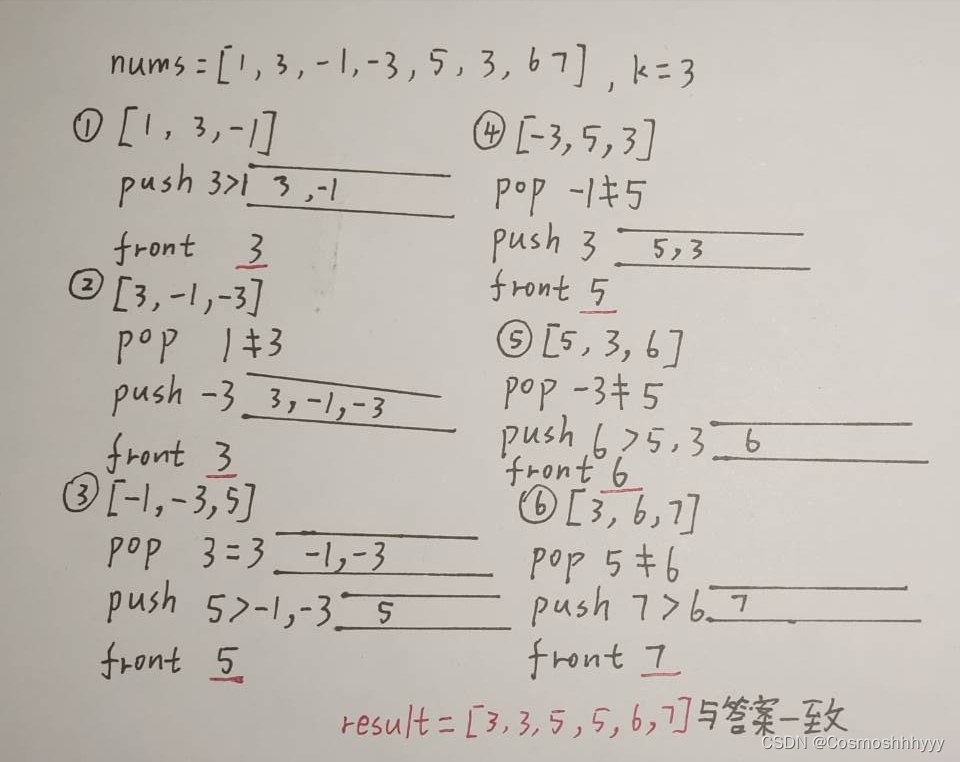 nums=[1, 3, -1, -3, 5, 3, 6 7], k=3
① [1, 3, -1]
push 3>1 3, -1
front 3
② [3, -1, -3]
pop 1≠3
push -3 3, -1, -3
front 3
③ [-1, -3, 5]
pop 3=3 -1, -3
push 5>-1, -3 5
front 5
④ [-3, 5, 3]
pop -1≠5
push 3 5, 3
front 5
⑤ [5, 3, 6]
pop -3≠5
push 6>5, 3 6
front 6
⑥ [3, 6, 7]
pop 5≠6
push 7>6 7
front 7
result=[3, 3, 5, 5, 6, 7]与答案一致
CSDN @Cosmoshhhyyy